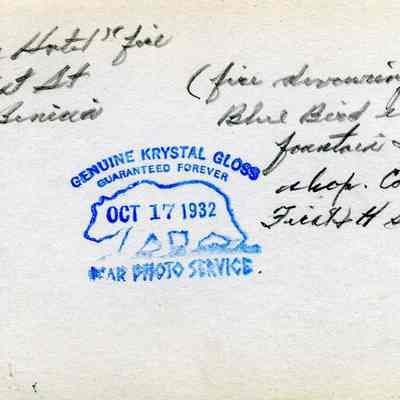 Hotel" fire
st St
Benicia
(fire devouring
Blue Bird
fountain
shop. Co
First & H S
GENUINE KRYSTAL GLOSS
GUARANTEED FOREVER
OCT 17 1932
BEAR PHOTO SERVICE.